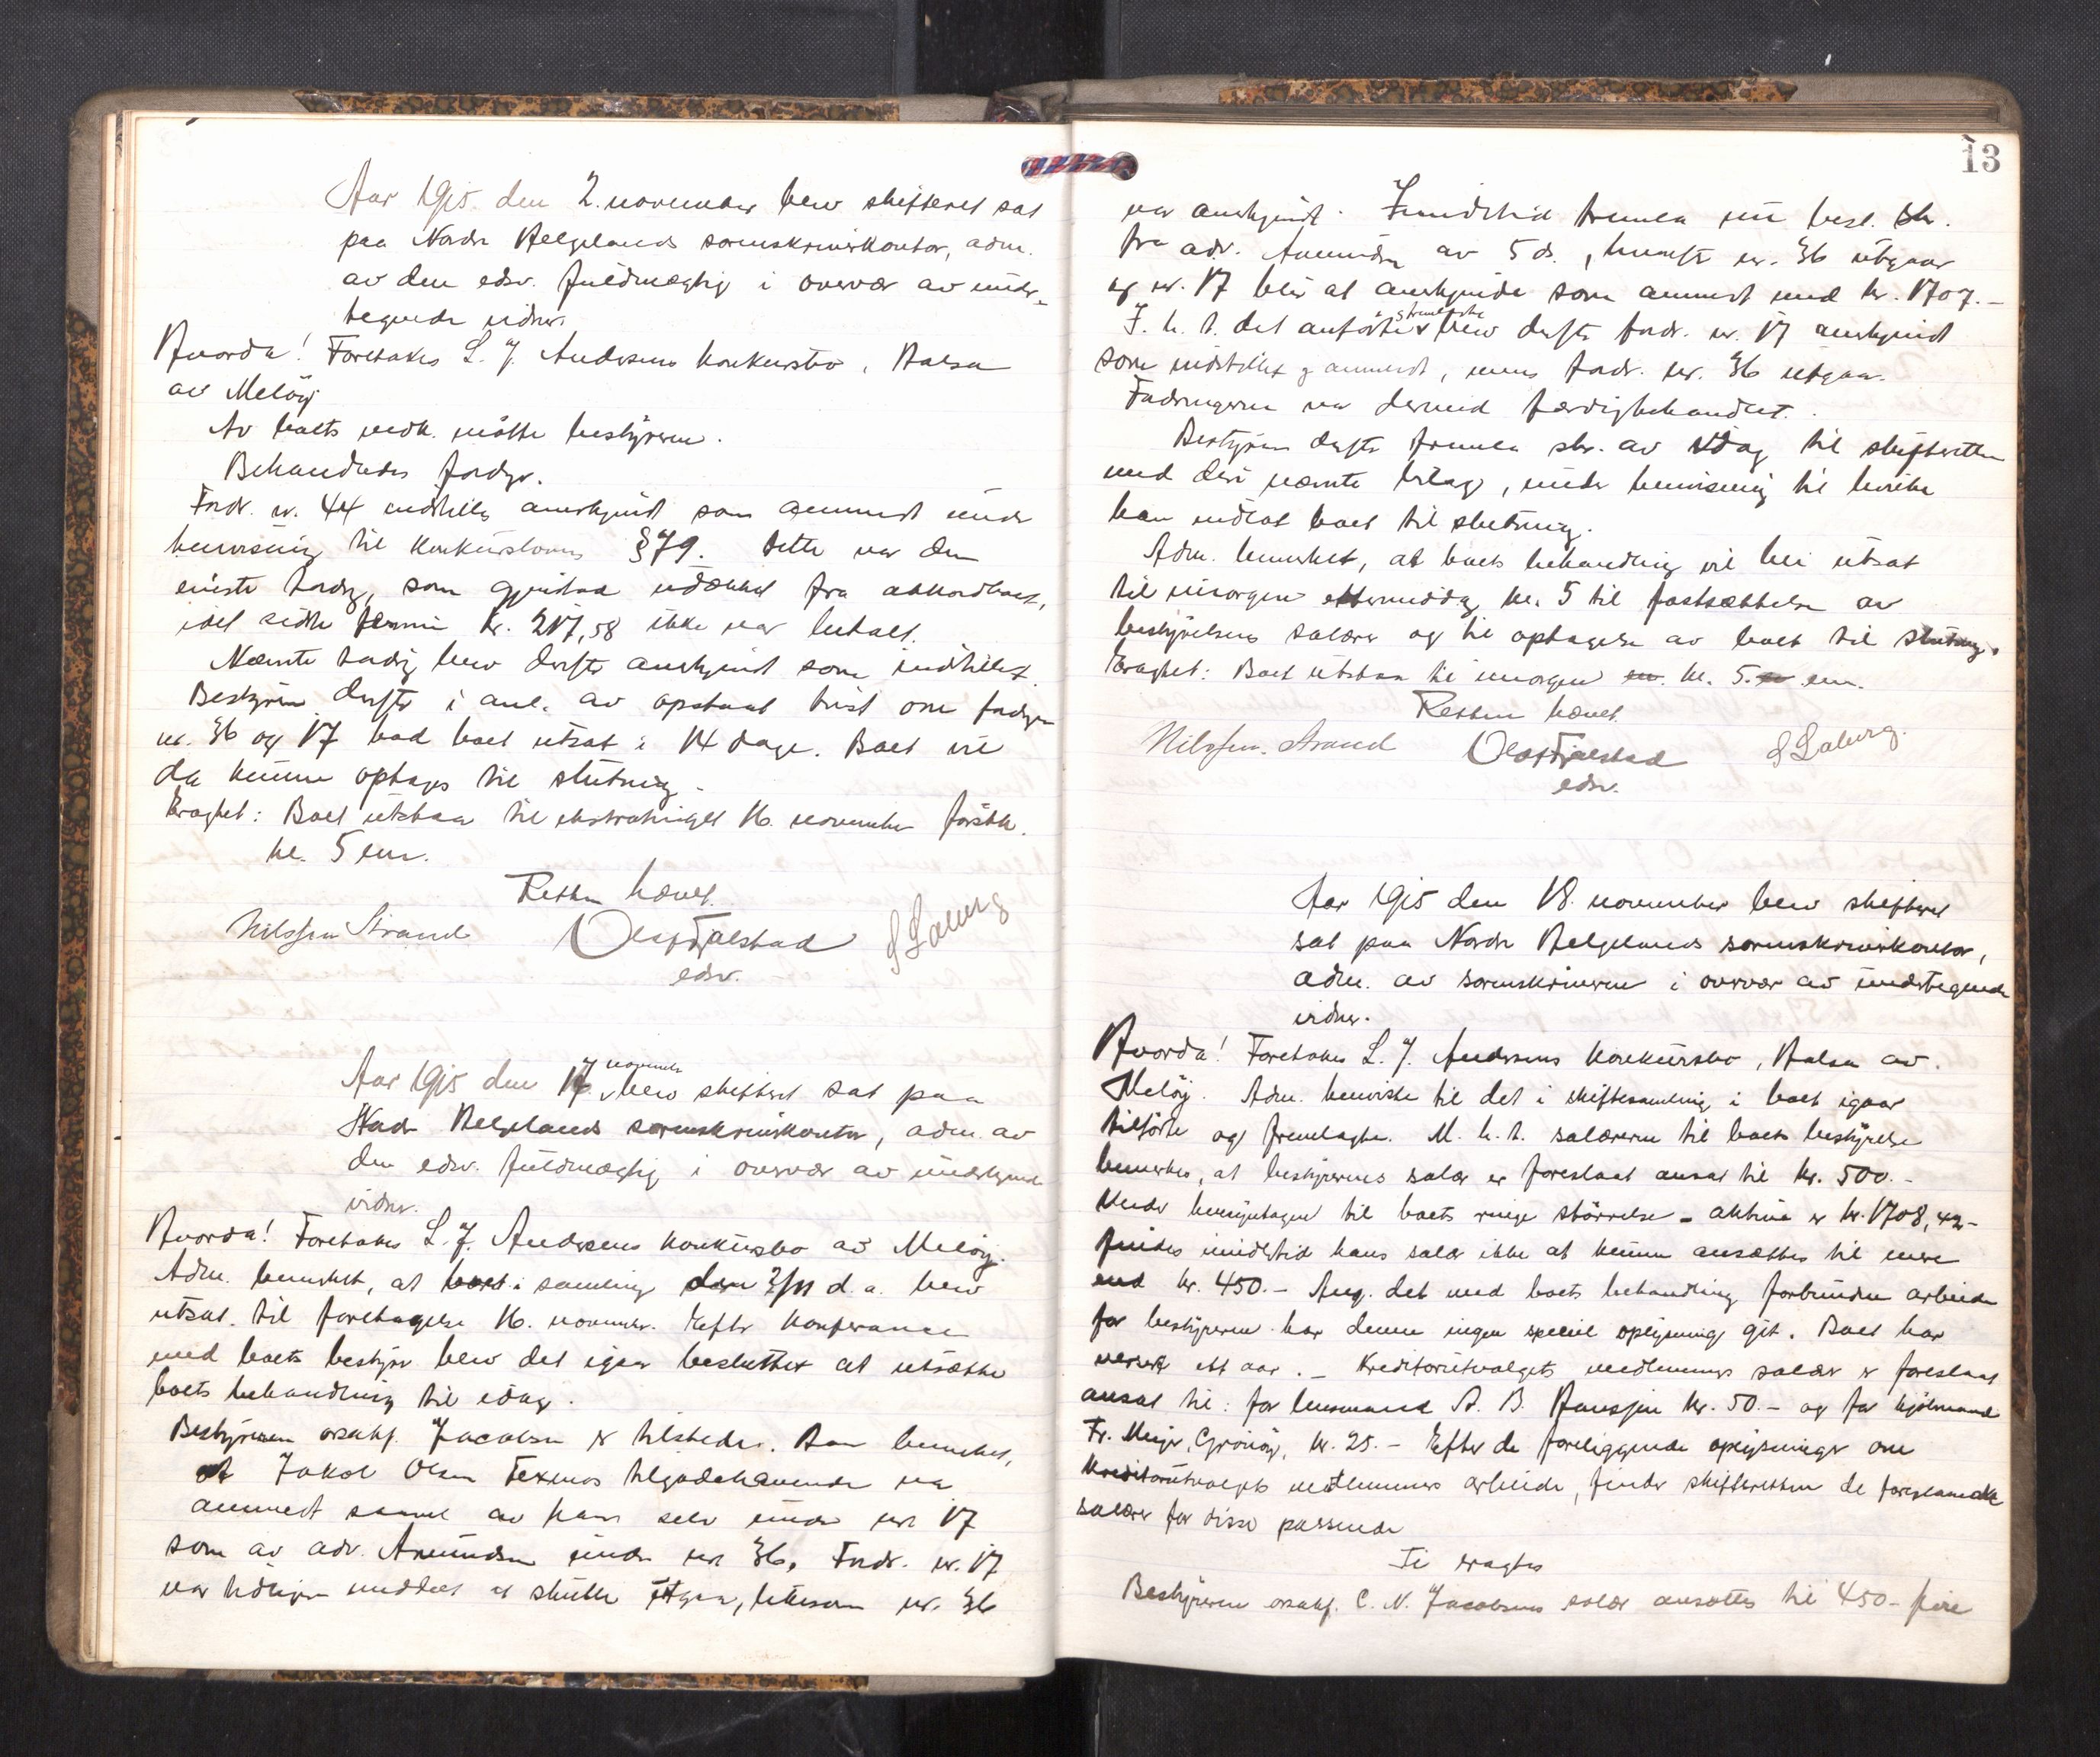 Aar 1915 den 2. november blev skifteret sat
paa Nordre Helgelands sorenskriverkontor, adm.
av den edsv. fuldmægtig i overvær av under-
tegnede vidner.
Hvorda! Foretokes L. J. Andersens konkursbo, Halsa
av Meløy
Av boets vedk. møtte bestyreren.
Behandledes fordgr.
Fordr. nr. 44 indstilles anerkjendt som anmeldt under
henvisning til konkurslovens §79. Dette var den
eneste fordg, som gjenstod udækket fra akkordboet,
idet sidste termin kr. 217,58 ikke var betalt.
Nævnte fordg blev derefter anerkjendt som indstillet.
Bestyreren derefter i anl. av opstaat tvist om fordgen
nr. 36 og 17 bad boet utsat i 14 dage. Boet vil
da kunne optages til slutning.
Eragtet: Boet utstaar til ekstraretsmøtet 16. november førstk.
kl. 5 em.
Retten hævet.
Nilssen Strand Olaf Fjalstad S Solberg
edsv.
Aar 1915 den 17 november blev skifteret sat paa
Nordr Helgelands sorenskriverkontor, adm. av
den edsv. fuldmægtig i overvær av undertegnede
vidner.
Hvorda! Foretokes L. J. Andersens konkursbo av Meløy.
Adm. bemerket, at boet i samling den 2/11 d.a. blev
utsat til foretagelse 16. november. Efter konferance
med boets bestyrer blev det igaar besluttet at utsætte
boets behandling til idag.
Bestyreren orsakf. Jacobsen er tilstede. Han bemerket,
at Jakob Olsen Texmos tilgodehavende var
anmeldt saavel av ham selv under nr. 17
som av adv. Amundsen under nr. 36. Fordr. nr. 17
var tidligere meddelt at skulle utgaa, likesom nr. 36
13
var anerkjendt. Imidlertid fremla nu best. skr.
fra adv. Amundsen av 5 ds., hvorefter nr. 36 utgaar
og nr. 17 blir at anerkjende som anmeldt med kr. 1707.-
I. h. t. det anførte & fremlagte blev derefter fordr. nr. 17 anerkjendt
som indstillet og anmeldt, mens fordr. nr. 36 utgaar.
Fordringerne var dermed færdigbehandlet.
Bestyreren derefter fremla skr. av idag til skifteretten
med deri nævnte bilag, under henvisning til hvilke
han indlot boet til slutning.
Adm. bemerket, at boets behandling vil bli utsat
til imorgen ettermiddag kl. 5 til fastsættelse av
bestyrelsens salærer og til optagelse av boet til slutning.
Eragtet: Boet utstaar til imorgen kl. 5 em.
Retten hævet.
Nilssen Strand Olaf Fjalstad S Solberg.
edsv.
Aar 1915 den 18. november blev skifteret
sat paa Nordr Helgelands sorenskriverkontor,
adm. av sorenskriveren i overvær av undertegnede
vidner.
Hvorda! Foretokes L. J. Andersens konkursbo, Halsa av
Meløy. Adm. henviste til det i skiftesamling i boet igaar
tilførte og fremlagte. M. h. t. salærerne til boets bestyrelse
bemerkes, at bestyrerens salær er foreslaat ansat til kr. 500.-
Under hensyntagen til boets ringe størrelse - aktiva er kr. 1708,42 -
findes imidlertid hans salær ikke at kunne ansættes til mere
end kr. 450.- Ang. det med boets behandling forbundne arbeide
for bestyreren har denne ingen speciel oplysning git. Boet har
verseret ett aar. - Kreditorutvalgets medlemmers salær er foreslaat
ansat til: for lensmand A. B. Hansjen kr. 50.- og for kjøbmand
Fr. Meyer, Grønøy, kr. 25.- Efter de foreliggende oplysninger om
kreditorutvalgets medlemmers arbeide, finder skifteretten de foreslaaede
salærer for disse passende
Ti eragtes
Bestyreren orsakf. C. N. Jacobsens salær ansættes til 450- fire